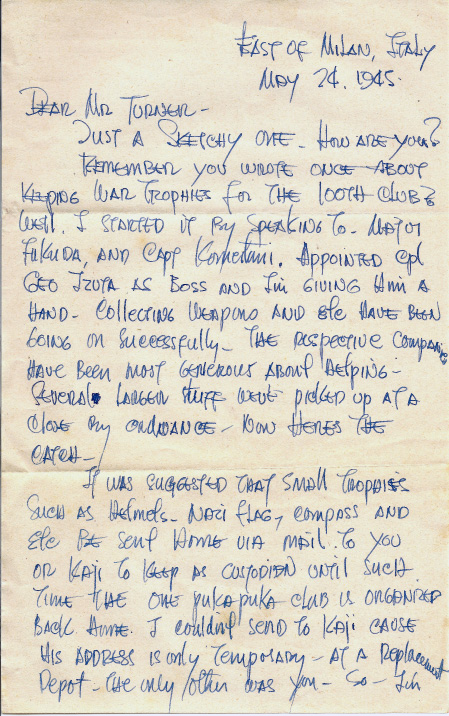 EAST OF MILAN, ITALY
MAY 24. 1945.
DEAR MR TURNER -
JUST A SKETCHY ONE - HOW ARE YOU?
REMEMBER YOU WROTE ONCE ABOUT
KEEPING WAR TROPHIES FOR THE 100TH CLUB?
WELL. I STARTED IT BY SPEAKING TO - MAJOR
FUKUDA, AND CAPT KOMETANI. APPOINTED CPL
GEO IZUTA AS BOSS AND I'M GIVING HIM A
HAND - COLLECTING WEAPONS AND ETC HAVE BEEN
GOING ON SUCCESSFULLY - THE RESPECTIVE COMPANIES
HAVE BEEN MOST GENEROUS ABOUT HELPING -
SEVERAL LARGER STUFF WERE PICKED UP AT A
CLOSE BY ORDDANCE - NOW HERES THE
CATCH -
IT WAS SUGGESTED THAT SMALL TROPHIES
SUCH AS HELMETS - NAZI FLAG, COMPASS AND
ETC BE SENT HOME VIA MAIL TO YOU
OR KAJI TO KEEP AS CUSTODIEN UNTIL SUCH
TIME THE ONE PUKA PUKA CLUB IS ORGANIZED
BACK HOME. I COULDN'T SEND TO KAJI CAUSE
HIS ADDRESS IS ONLY TEMPORARY - AT A REPLACEMENT
DEPOT - THE ONLY OTHER WAS YOU - SO - I'M